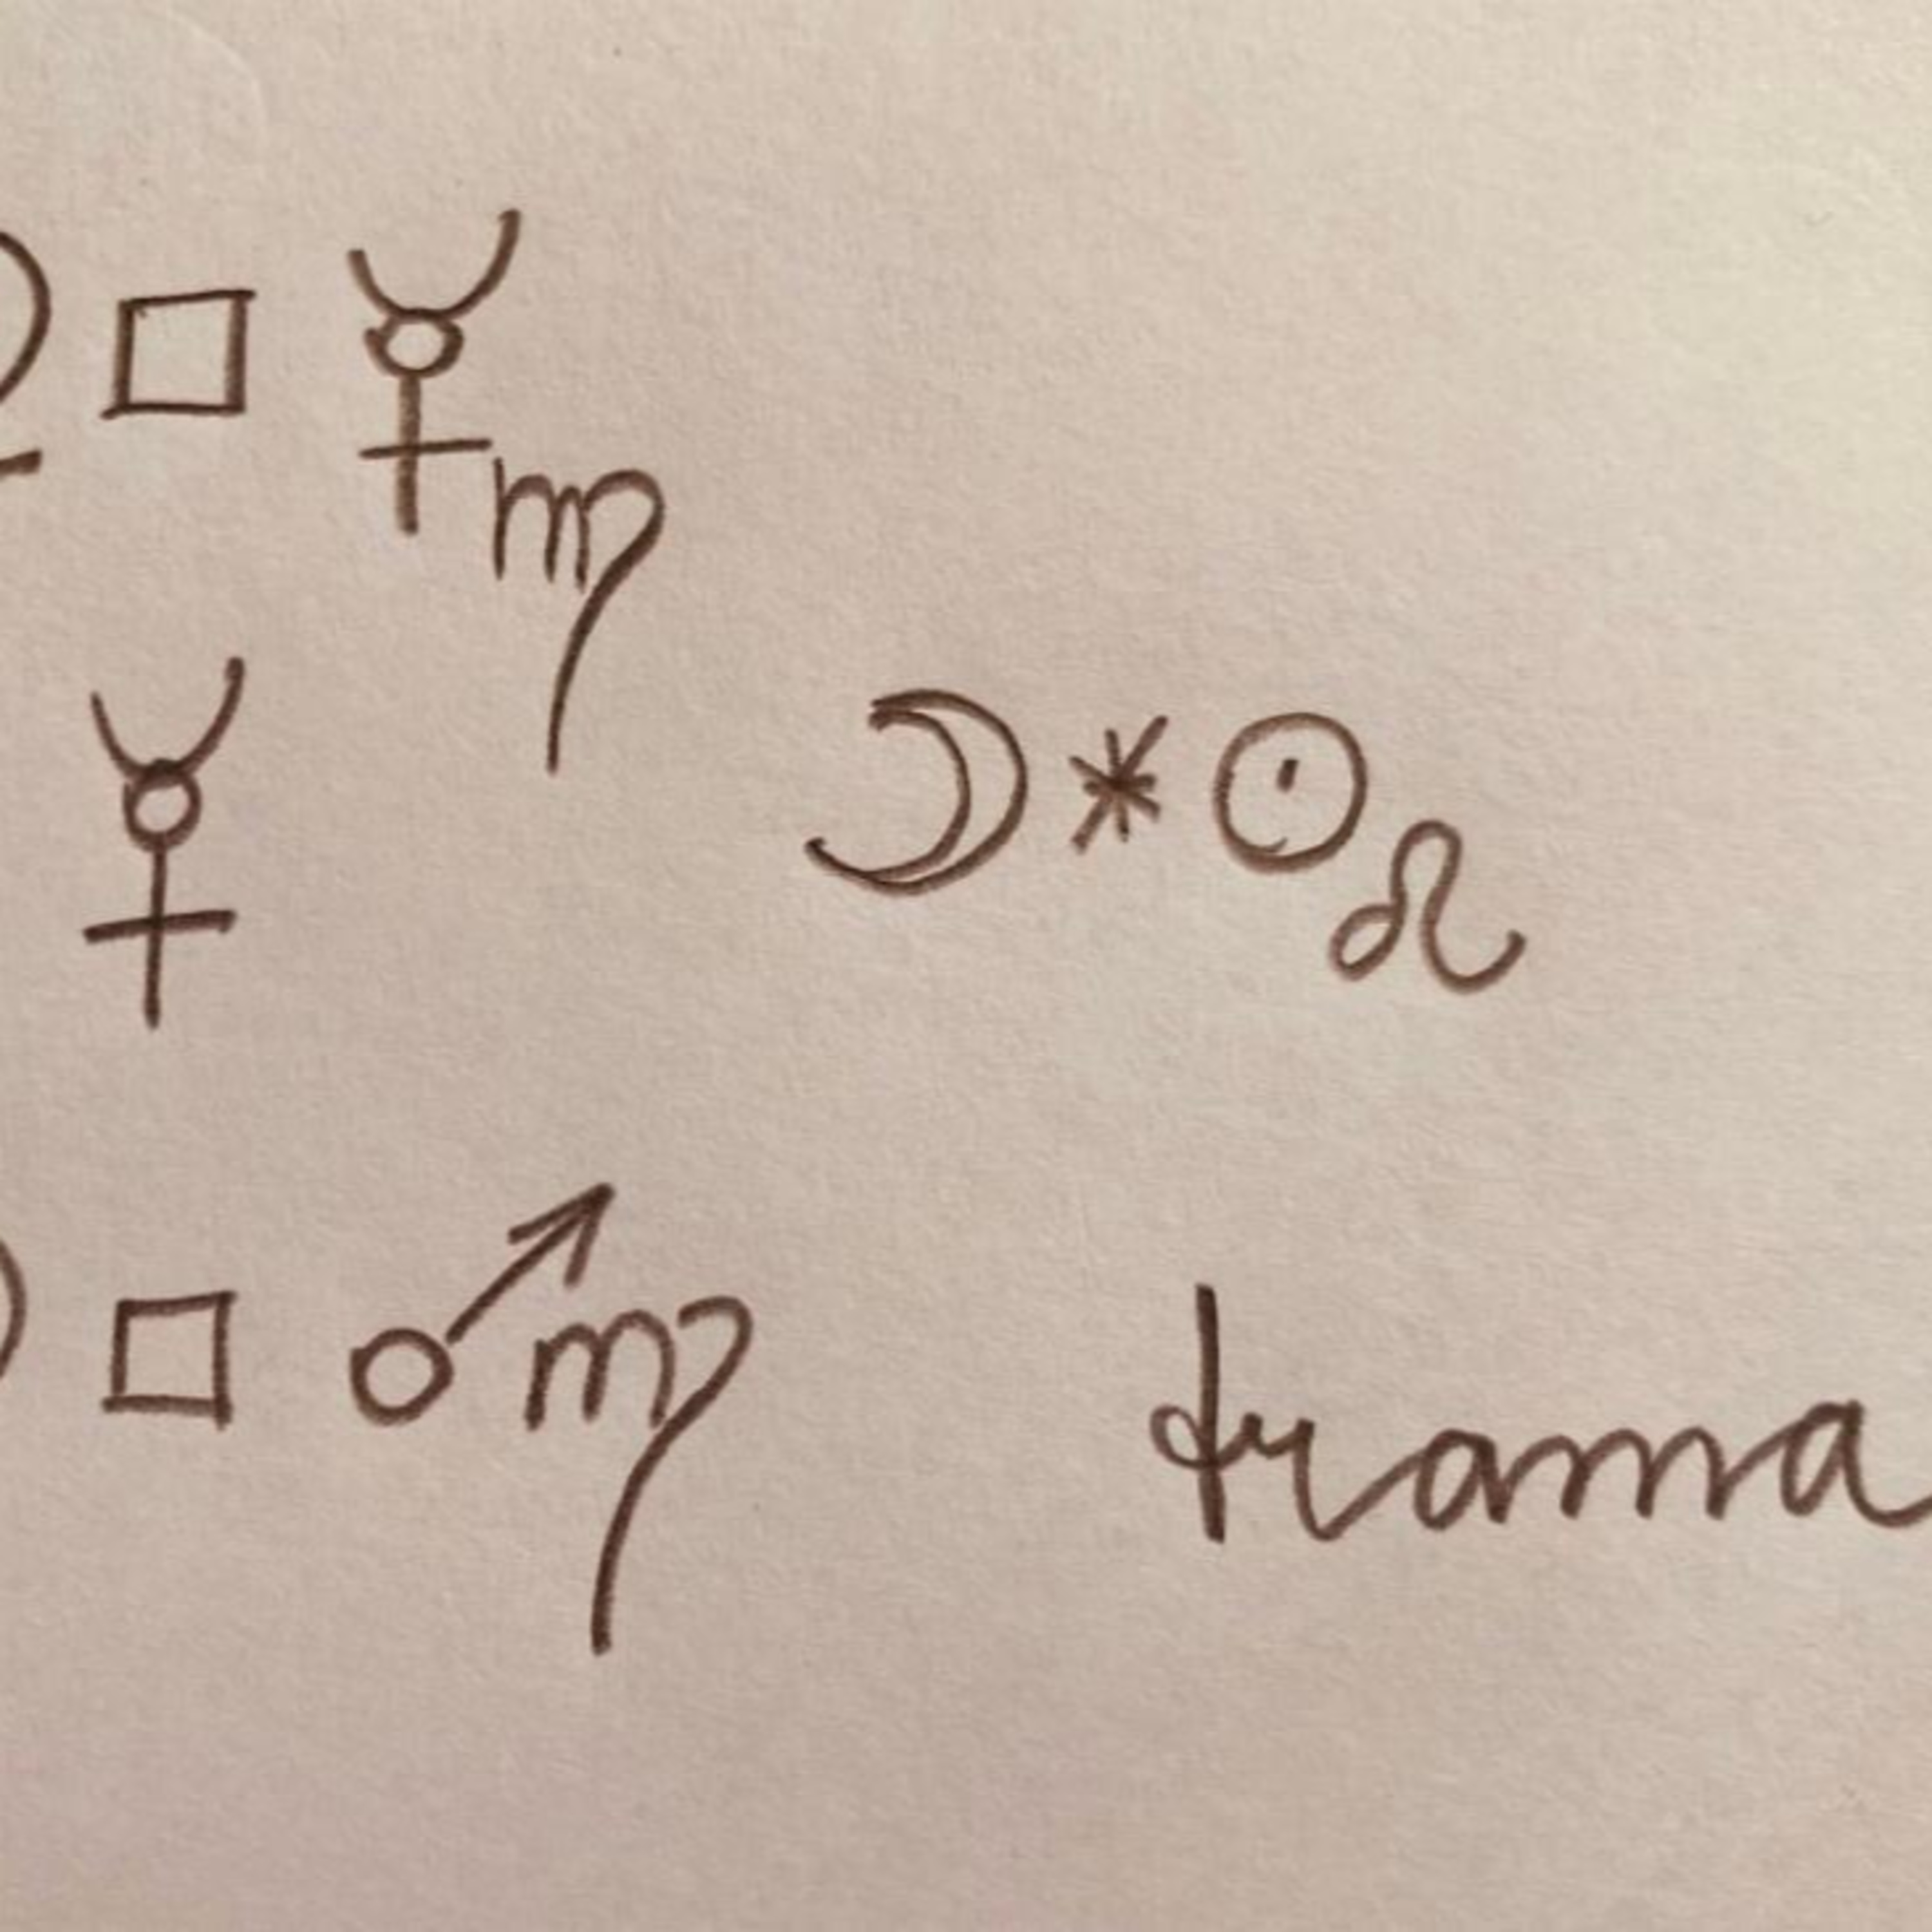 ♀ □ ☿ ♍
☿
☽ ⚹ ☉ ♌
□ ♂ ♍
trama